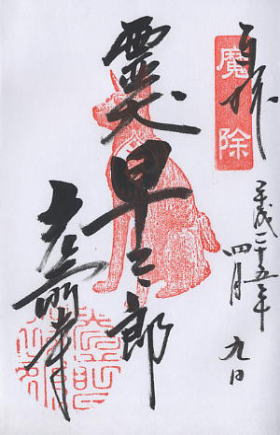 奉拝
魔除
平成二十五年
四月九日
霊犬早太郎
光前寺